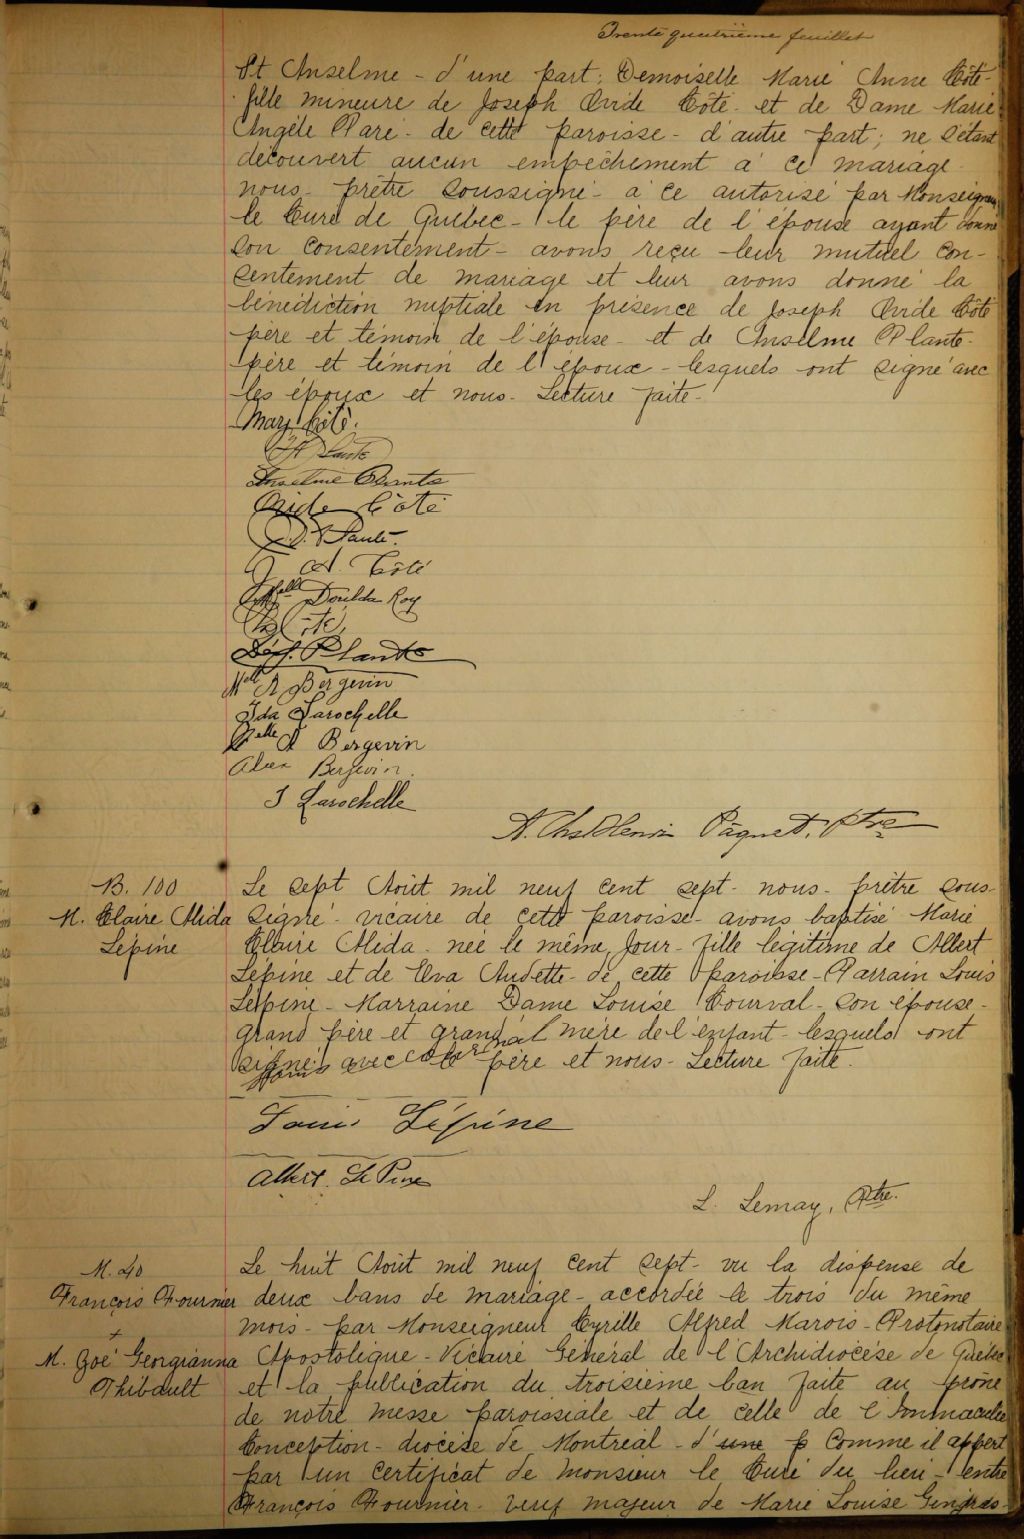 Trente quatrième feuillet
St Anselme - d'une part; Demoiselle Marie Anne Côté -
fille mineure de Joseph Ovide Côté - et de Dame Marie
Angèle Paré - de cette paroisse - d'autre part; ne s'étant
découvert aucun empêchement à ce mariage -
nous - prêtre soussigné - à ce autorisé par Monseigneur
le Curé de Québec - le père de l'épouse ayant donné
son consentement - avons reçu leur mutuel con-
sentement de mariage et leur avons donné la
bénédiction nuptiale en présence de Joseph Ovide Côté
père et témoin de l'épouse - et de Anselme Plante -
père et témoin de l'époux - lesquels ont signé avec
les époux et nous - Lecture faite -
Mary Côté.
Plante
Anselme Plante
Ovide Côté
Plante.
J. A. Côté
Melle Donilda Roy
Côté,
Plante
Melle A Bergevin
Ida Larochelle
Melle A Bergevin
Bergevin.
J Larochelle
Henri Pâquet, Ptre
B. 100
M. Claire Alida
Lépine
Le sept Août mil neuf cent sept - nous - prêtre sous-
signé - vicaire de cette paroisse - avons baptisé Marie
Claire Alida - née le même jour - fille légitime de Albert
Lépine et de Eva Audette - de cette paroisse - Parrain Louis
Lépine - Marraine Dame Louise Courval - son épouse -
grand père et grand mère de l'enfant - lesquels ont
signé avec le père et nous - Lecture faite.
Louis Lépine
Albert Le Pine
L. Lemay, Ptre.
M. 40
François Fournier
+
M. Zoé Georgianna
Thibault
Le huit Août mil neuf cent sept - vu la dispense de
deux bans de mariage - accordée le trois du même
mois - par Monseigneur Cyrille Alfred Marois - Protonotaire
Apostolique - Vicaire Général de l'Archidiocèse de Québec
et la publication du troisième ban faite au prône
de notre messe paroissiale et de celle de l'Immaculée
Conception - diocèse de Montréal - d'une p comme il appert
par un certificat de monsieur le Curé du lieu - entre
François Fournier - veuf majeur de Marie Louise Gingras -